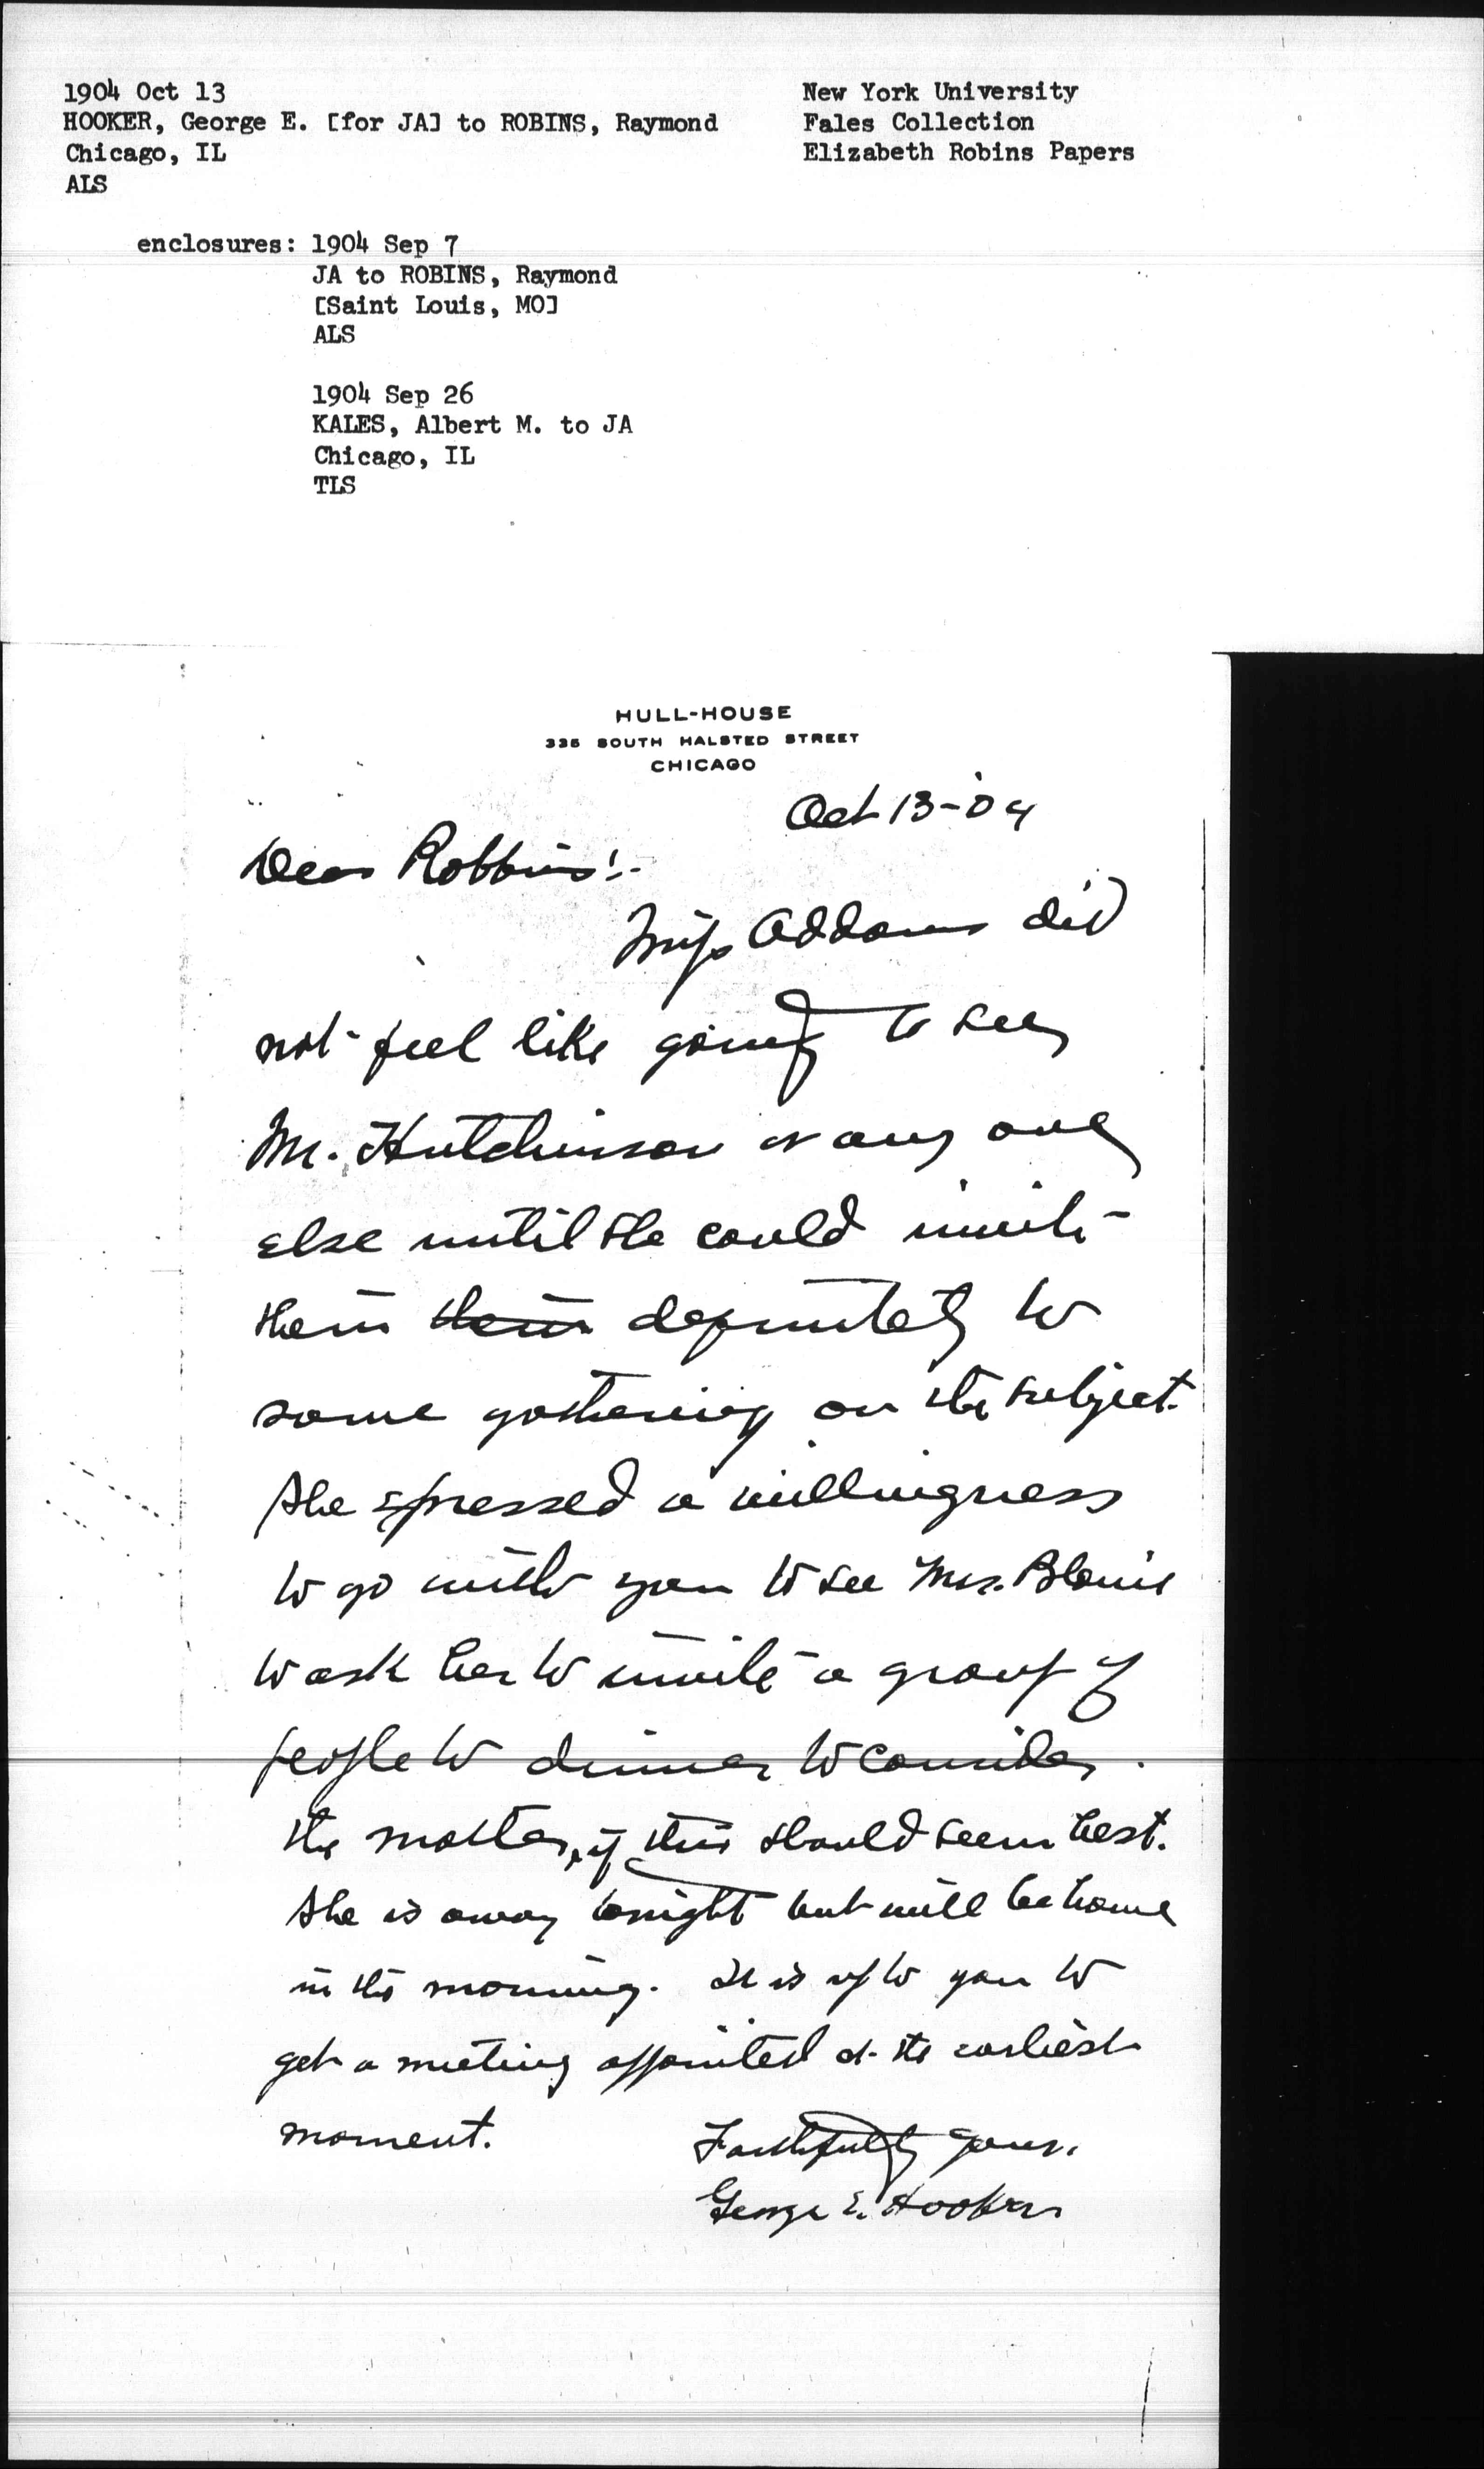 1904 Oct 13
HOOKER, George E. [for JA] to ROBINS, Raymond
Chicago, IL
ALS
New York University
Fales Collection
Elizabeth Robins Papers
enclosures: 1904 Sep 7
JA to ROBINS, Raymond
[Saint Louis, MO]
ALS
1904 Sep 26
KALES, Albert M. to JA
Chicago, IL
TLS
HULL-HOUSE
335 SOUTH HALSTED STREET
CHICAGO
Oct 13-'04
Dear Robbins:-
Miss Addams did
not feel like going to see
Mr. Hutchinson or any one
else until she could invite
them them definitely to
some gathering on the subject.
She expressed a willingness
to go with you to see Mrs. Blaine
to ask her to invite a group of
people to dinner to consider
the matter, if this should seem best.
She is away tonight but will be home
in the morning. It is up to you to
get a meeting appointed at the earliest
moment.
Faithfully yours,
George E. Hooker